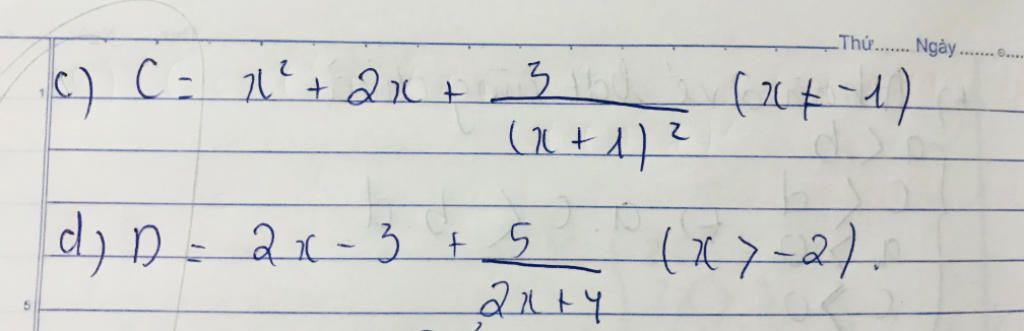 Thứ....... Ngày.......
c) C = x² + 2x + 3/(x + 1)² (x ≠ -1)
d) D = 2x - 3 + 5/(2x + 4) (x > -2).
5